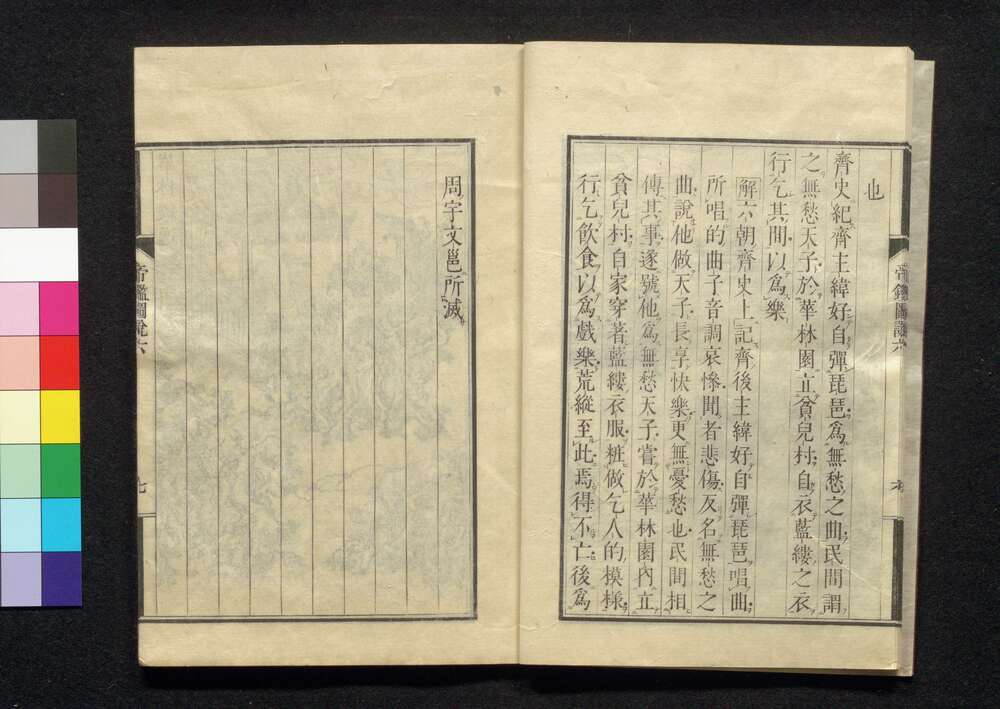 也
齊史紀齊主緯好自彈琵琶爲無愁之曲民間謂
之無愁天子於華林園立貧兒村自衣藍縷之衣
行乞其間以爲樂
解六朝齊史上記齊後主緯好自彈琵琶唱曲
所唱的曲子音調哀慘聞者悲傷反名無愁之
曲說他做天子長享快樂更無憂愁也民間相
傳其事遂號他爲無愁天子嘗於華林園內立
貧兒村自家穿著藍縷衣服粧做乞人的摸樣
行乞飲食以爲戲樂荒縱至此焉得不亡後爲
周宇文邕所滅
帝鑑圖說六
七